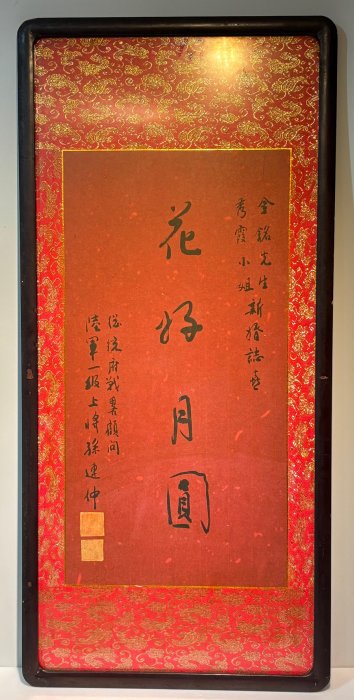 金銘先生
秀霞小姐新婚誌喜
花好月圓
總統府戰畧顧問
陸軍一級上將孫連仲